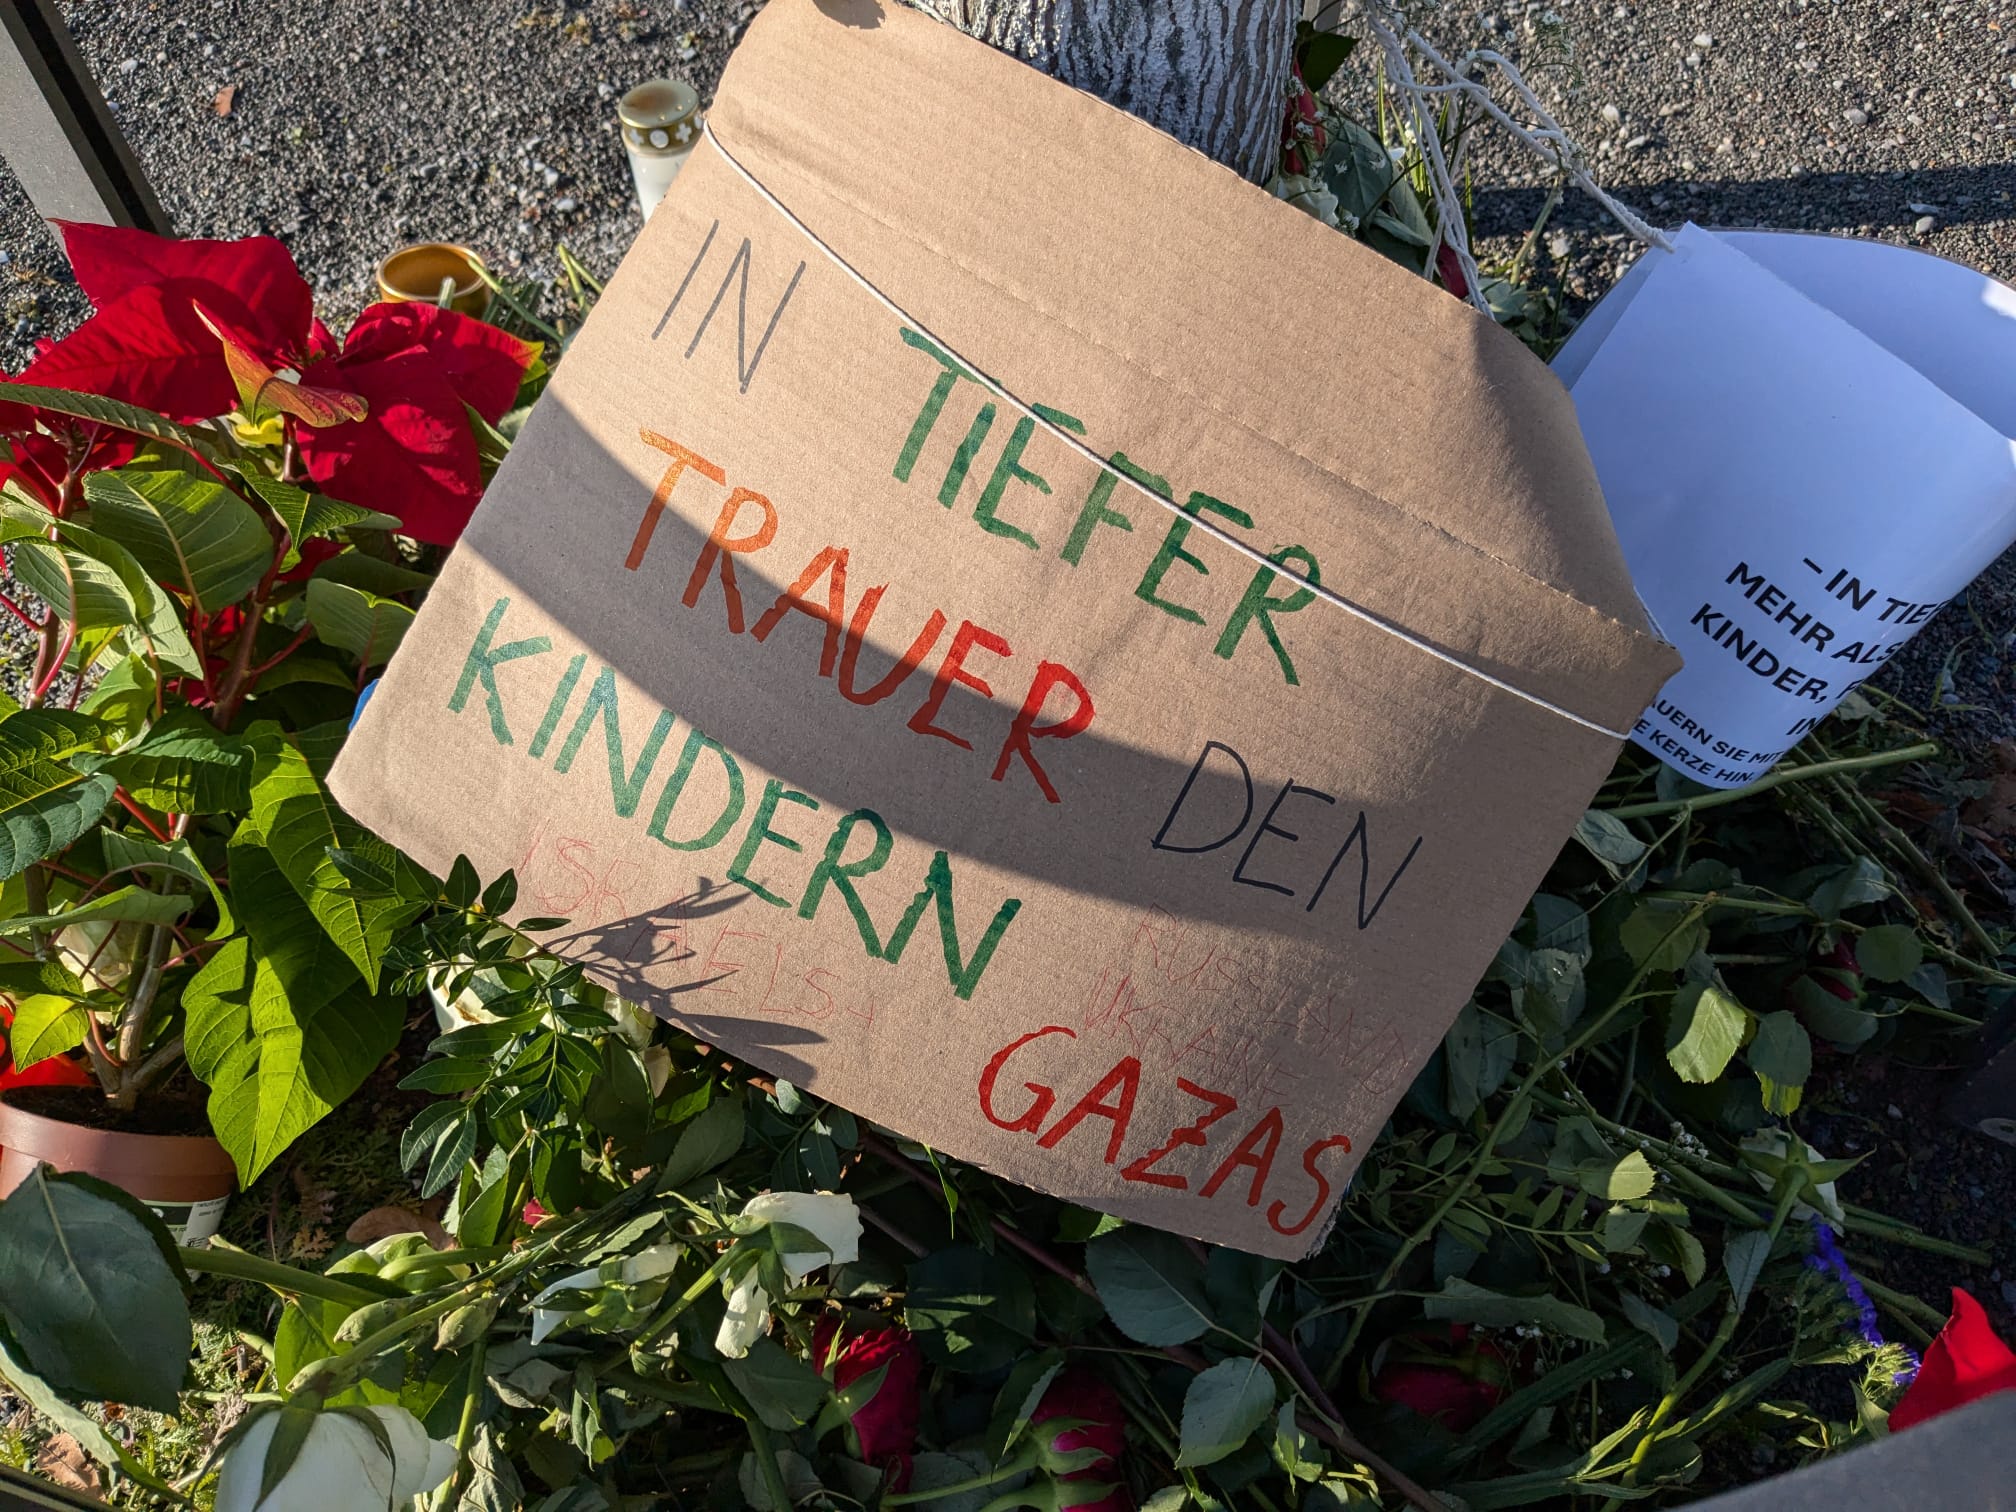 IN TIEFER
TRAUER DEN
KINDERN
ISRAELS
RUSSLAND
UKRAINE
GAZAS
– IN TIE
MEHR ALS
KINDER,
IN
AUERN SIE MIT
E KERZE HIN